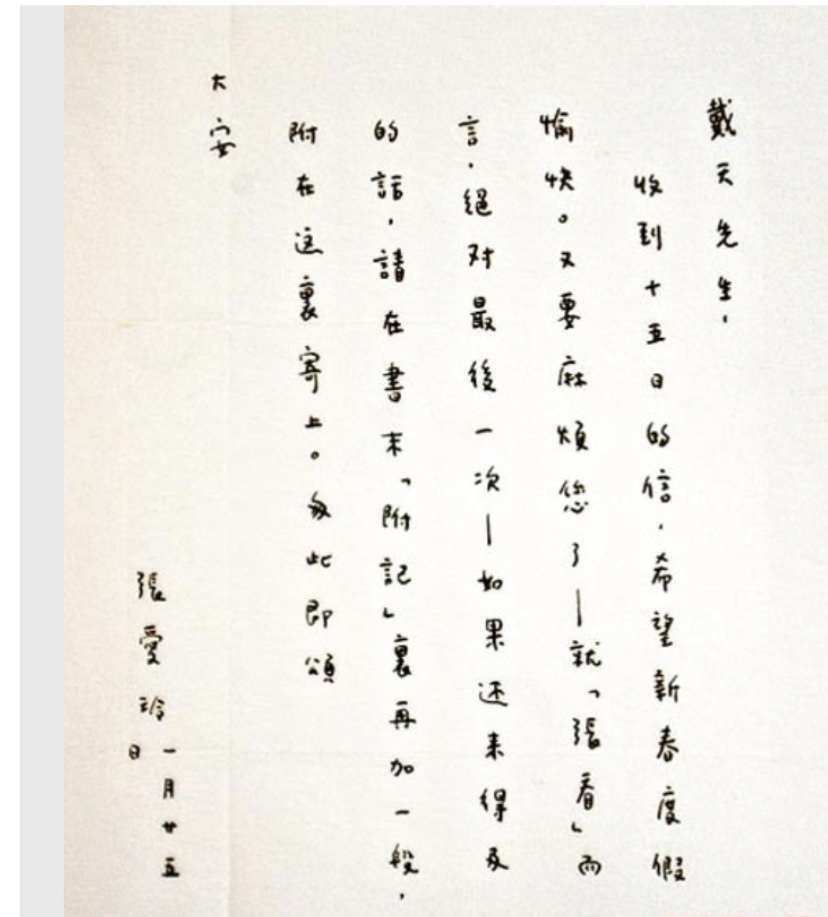 戴天先生,
收到十五日的信,希望新春度假
愉快。又要麻煩您了—就「張看」而
言,絕对最後一次—如果还来得及
的話,請在書末「附記」裏再加一段,
附在这裏寄上。匆此即頌
大安
張愛玲
一月廿五
日